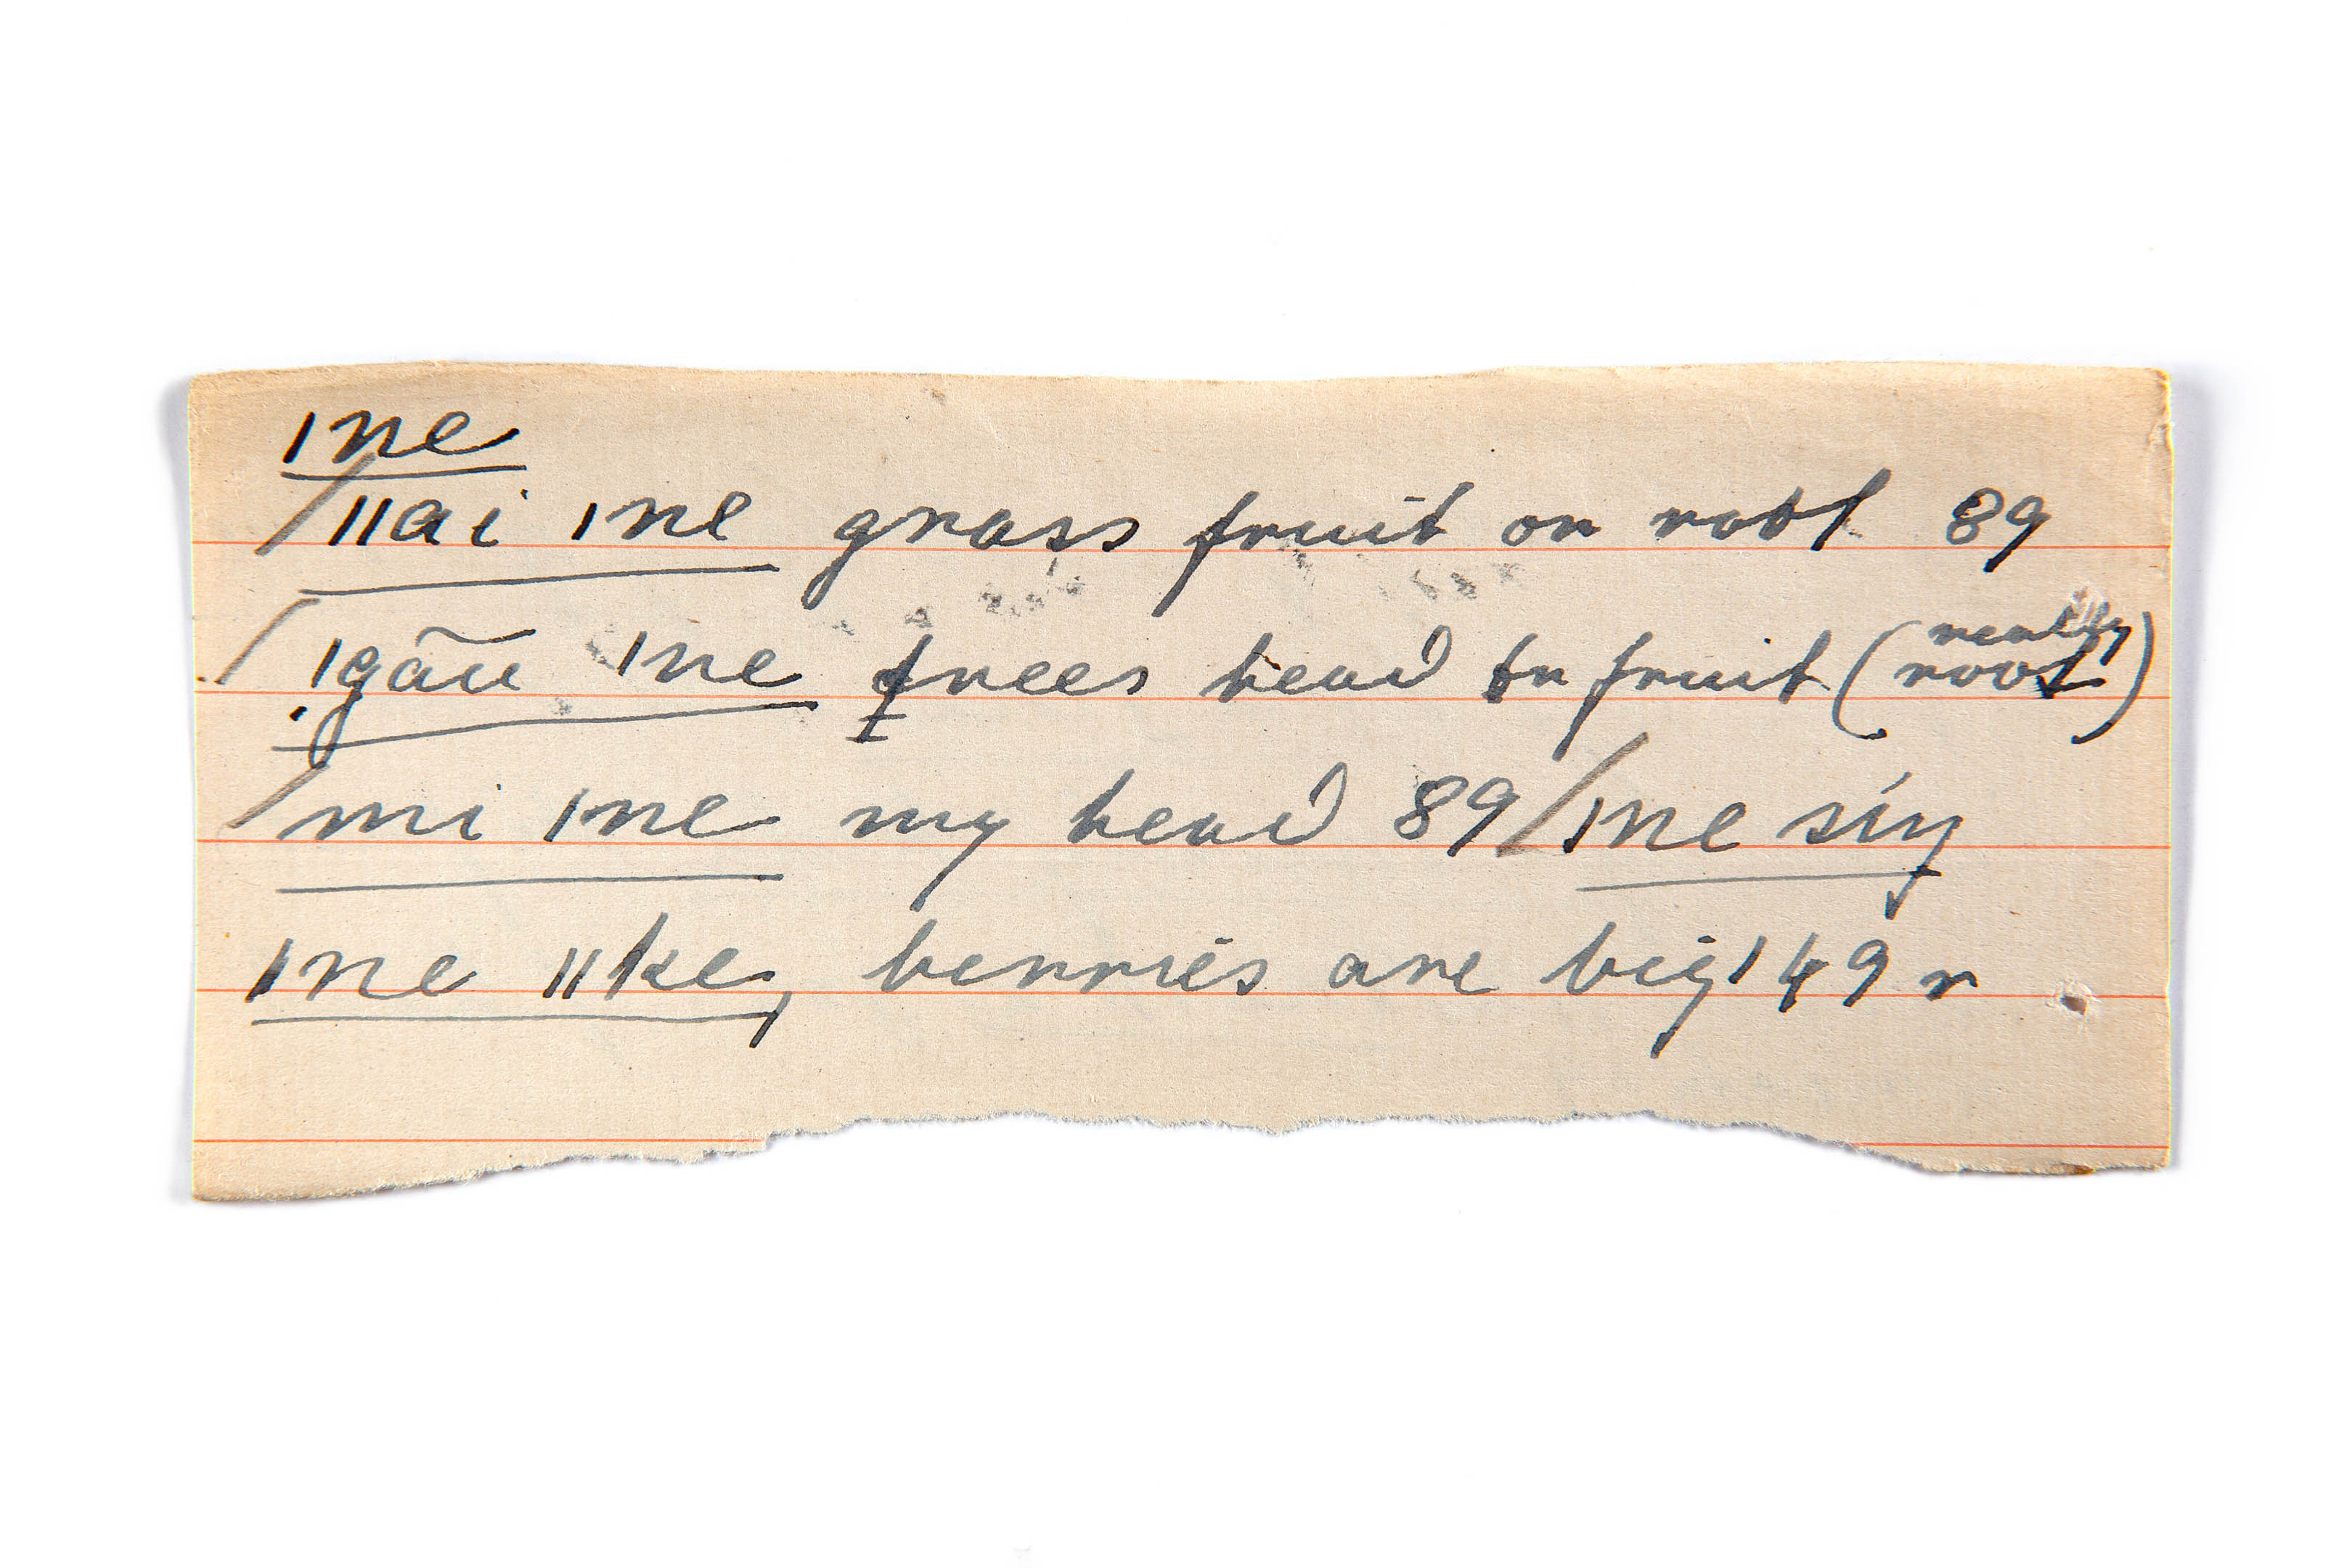 ǀne
/ǁai ǀne grass fruit or root 89
/ǃgãũ ǀne trees head or fruit (really root)
/mi ǀne my head 89/ǀne síŋ
ǀne ǁkeŋ berries are big 149 r